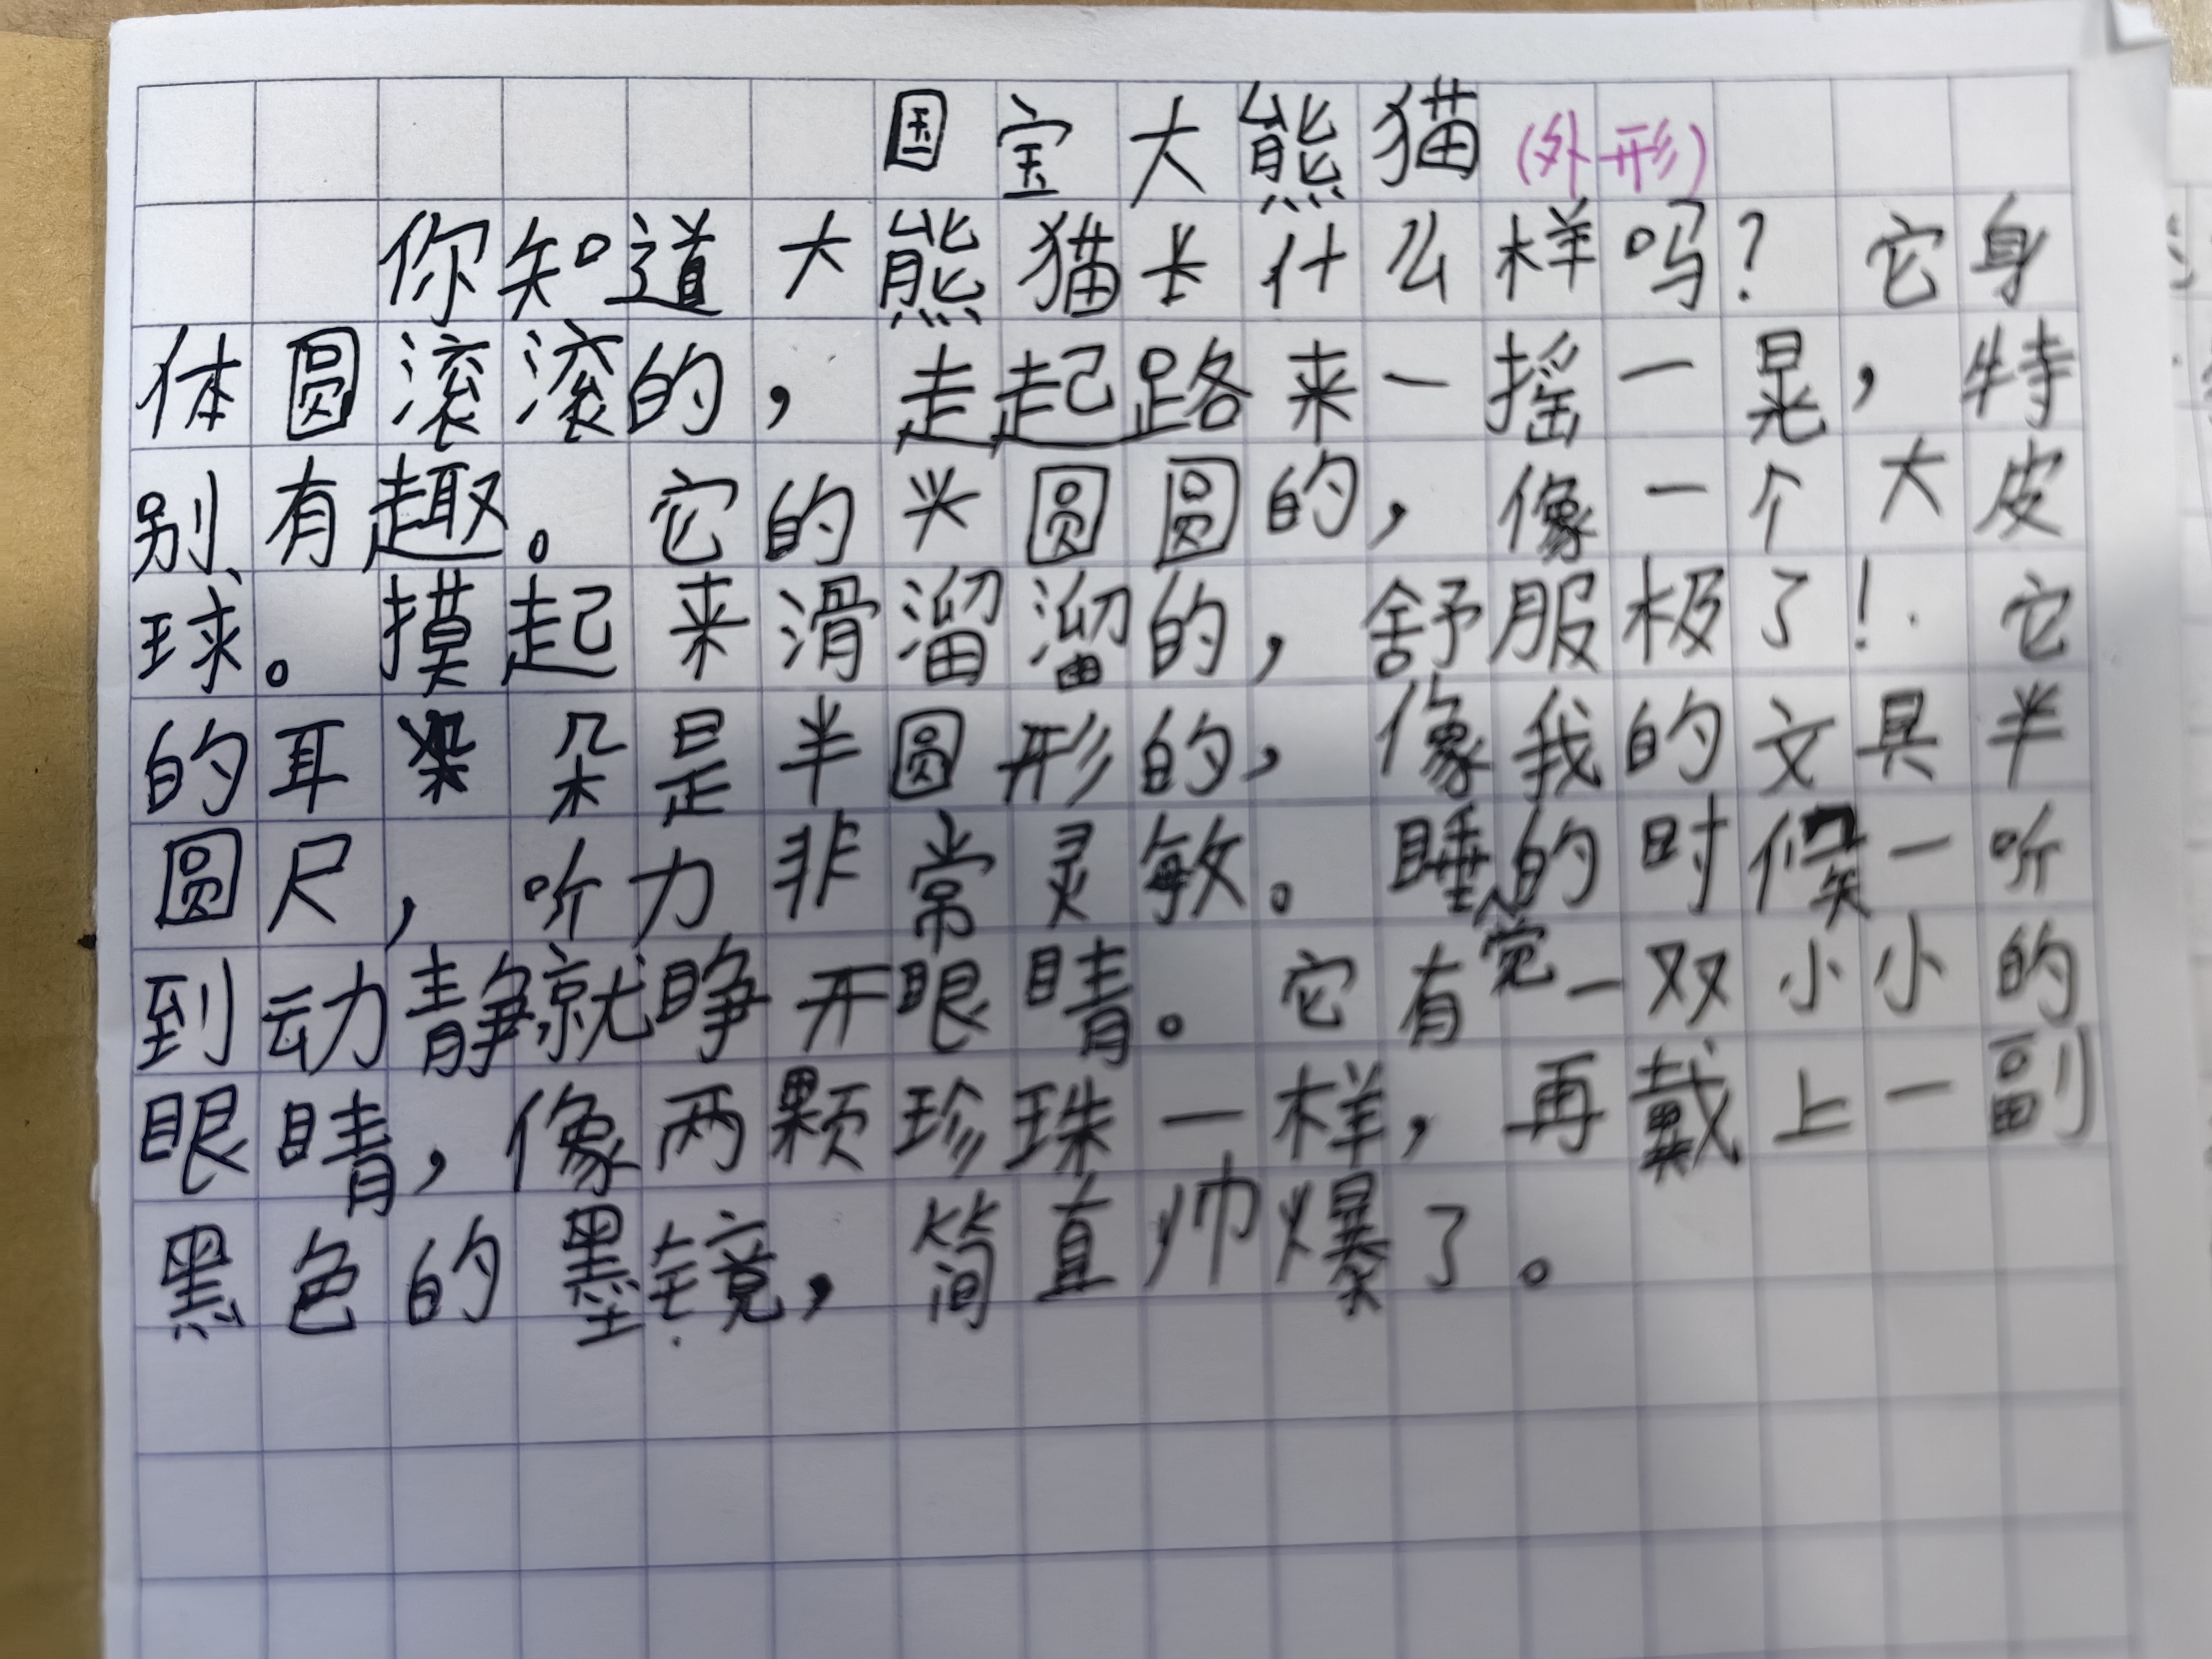 国宝大熊猫(外形)
你知道大熊猫长什么样吗？它身
体圆滚滚的，走起路来一摇一晃，特
别有趣。它的头圆圆的，像一个大皮
球。摸起来滑溜溜的，舒服极了！它
的耳朵是半圆形的，像我的文具半
圆尺，听力非常灵敏。睡觉的时候一听
到动静就睁开眼睛。它有一双小小的
眼睛，像两颗珍珠一样，再戴上一副
黑色的墨镜，简直帅爆了。